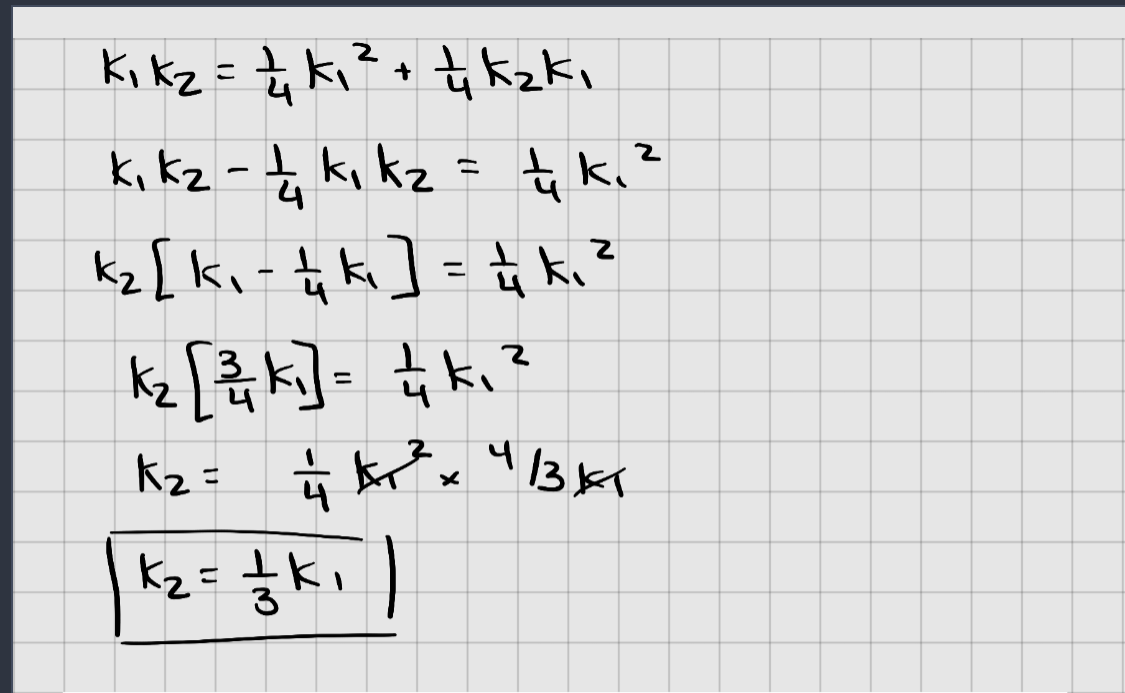 k₁k₂ = 1/4 k₁² + 1/4 k₂k₁
k₁k₂ - 1/4 k₁k₂ = 1/4 k₁²
k₂[k₁ - 1/4 k₁] = 1/4 k₁²
k₂[3/4 k₁] = 1/4 k₁²
k₂ = 1/4 k₁² × 4/3k₁
k₂ = 1/3 k₁